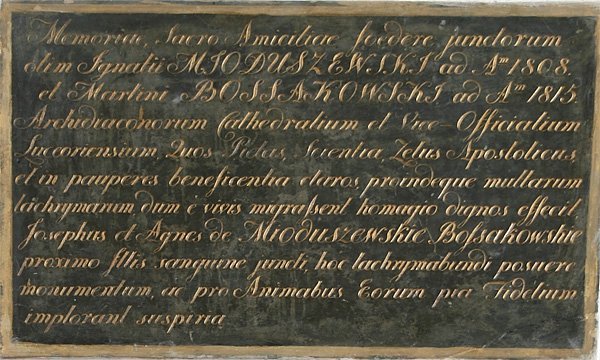 Memoriae, Sacro Amicitiae foedere junctorum
olim Ignatii MIODUSZEWSKI ad Aᵐ 1808.
et Martini BOSSAKOWSKI ad Aᵐ 1815.
Archidiaconorum Cathedralium et Vice Officialium
Luceoriensium, Quos Pietas, Scientia, Zelus Apostolicus,
et in pauperes beneficentia claros, proindeque multarum
lachrymarum dum è vivis migraſsent homagio dignos effecit
Josephus et Agnes de MIODUSZEWSKIE Boſsakowskie
proximo Illis sanguine juncti, hoc lachrymabundi posuere
monumentum, ac pro Animabus Eorum pia Fidelium
implorant suspiria